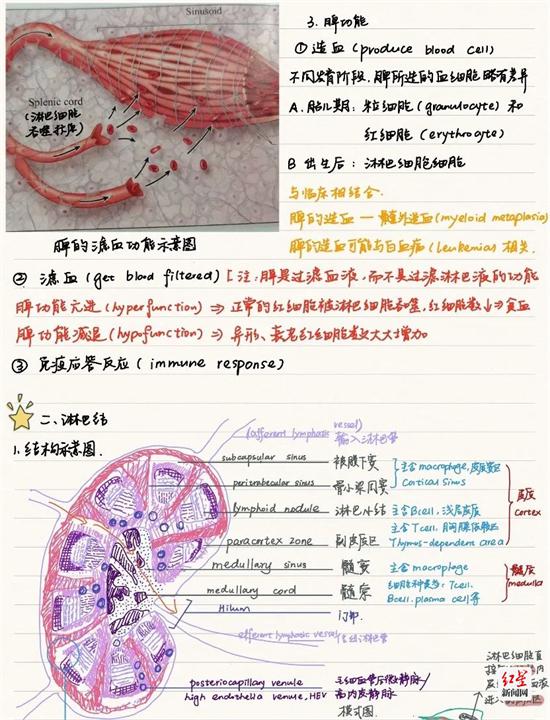 Sinusoid
Splenic cord
(淋巴细胞
脾的滤血功能示意图
3. 脾功能
① 造血 (produce blood cell)
不同发育阶段, 脾所造的血细胞略有差异
A. 胎儿期: 粒细胞 (granulocyte) 和
红细胞 (erythrocyte)
B 出生后: 淋巴细胞细胞
与临床相结合:
脾的造血 — 髓外造血 (myeloid metaplasia)
脾的造血可能与白血病 (Leukemias 相关.
② 滤血 (get blood filtered) [注: 脾是过滤血液, 而不是过滤淋巴液的功能
脾功能亢进 (hyperfunction) ⇒ 正常的红细胞被淋巴细胞吞噬, 红细胞数↓⇒贫血
脾功能减退 (hypofunction) ⇒ 异形、衰老红细胞数大大增加
③ 免疫应答反应 (immune response)
二、淋巴结
1. 结构示意图.
(afferent lymphatic vessel)
输入淋巴管
subcapsular sinus 被膜下窦
主含 macrophage, 皮质窦区
peritrabecular sinus 骨小梁周窦
Cortical sinus
lymphoid nodule 淋巴小结 主含 Bcell, 浅层皮质
皮质
cortex
paracortex zone 副皮质区 主含 Tcell, 胸腺依赖区
Thymus-dependent area
medullary sinus 髓窦 主含 macrophage
髓质
medulla
medullary cord 髓索 细胞种类多: Tcell,
Bcell, plasma cell等
Hilum 门部.
efferent lymphatic vessel 输出淋巴管
postercapillary venule 毛细血管后微静脉/
high endothelia venule, HEV 高内皮静脉
模式图.
淋巴细胞直
红星
新闻网